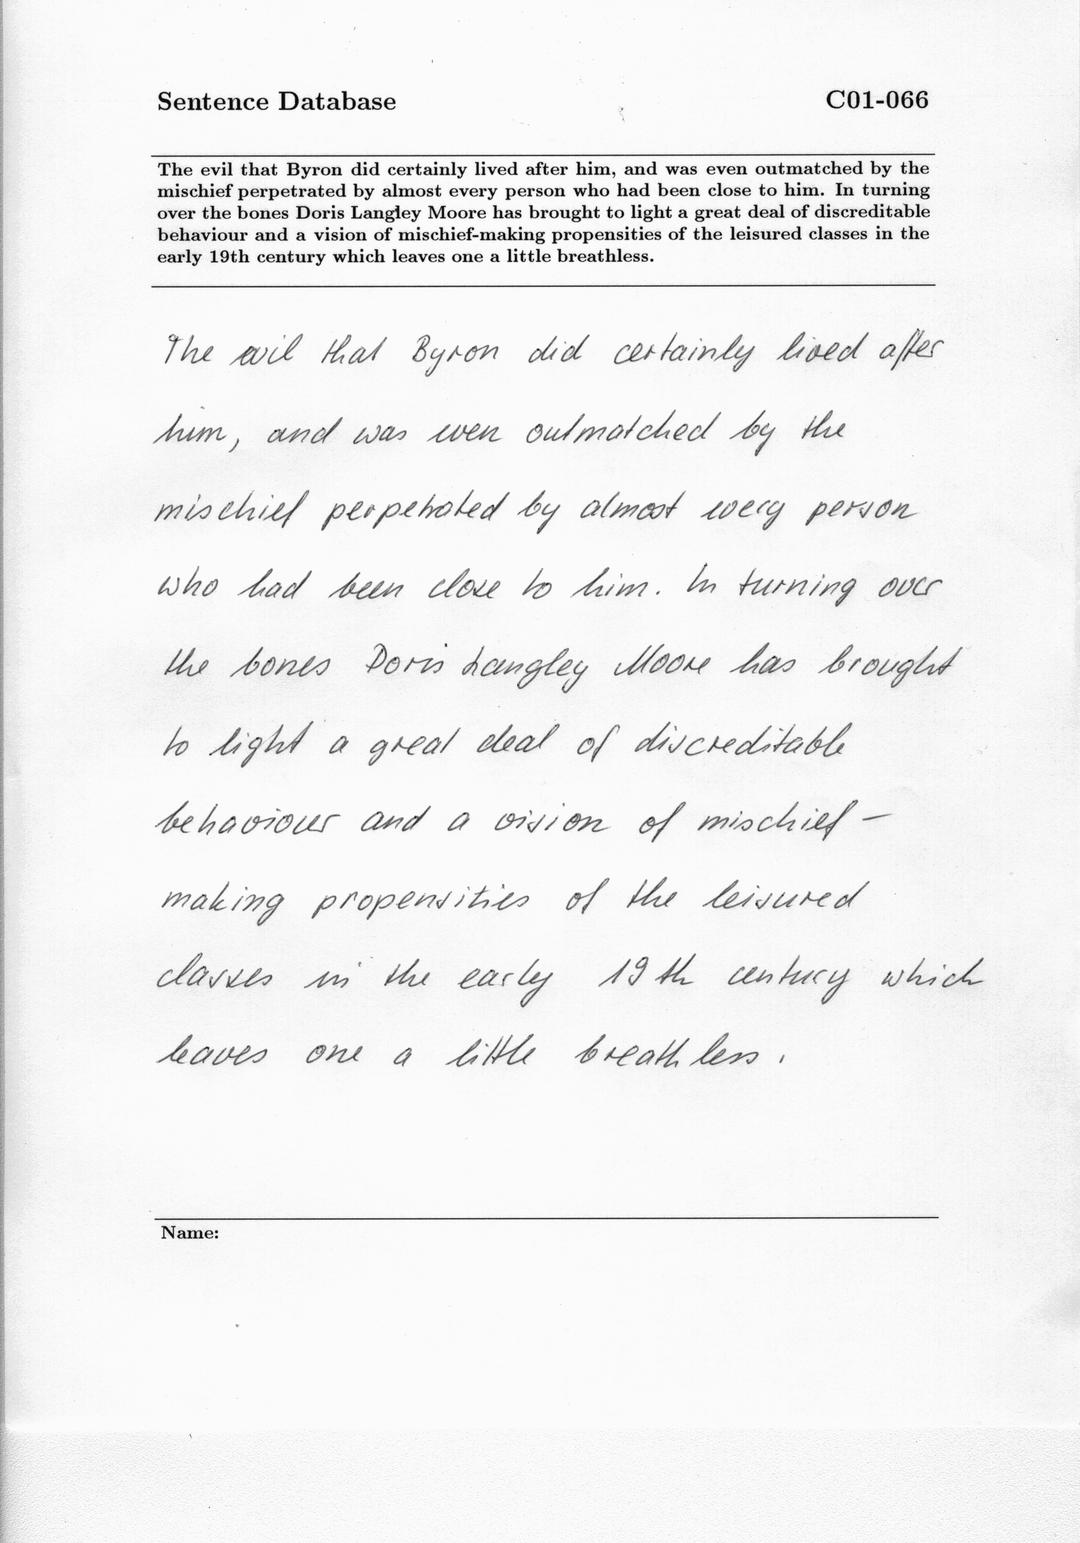 Sentence Database
C01-066
The evil that Byron did certainly lived after him, and was even outmatched by the
mischief perpetrated by almost every person who had been close to him. In turning
over the bones Doris Langley Moore has brought to light a great deal of discreditable
behaviour and a vision of mischief-making propensities of the leisured classes in the
early 19th century which leaves one a little breathless.
The evil that Byron did certainly lived after
him, and was even outmatched by the
mischief perpetrated by almost every person
who had been close to him. In turning over
the bones Doris Langley Moore has brought
to light a great deal of discreditable
behaviour and a vision of mischief-
making propensities of the leisured
classes in the early 19th century which
leaves one a little breathless.
Name: